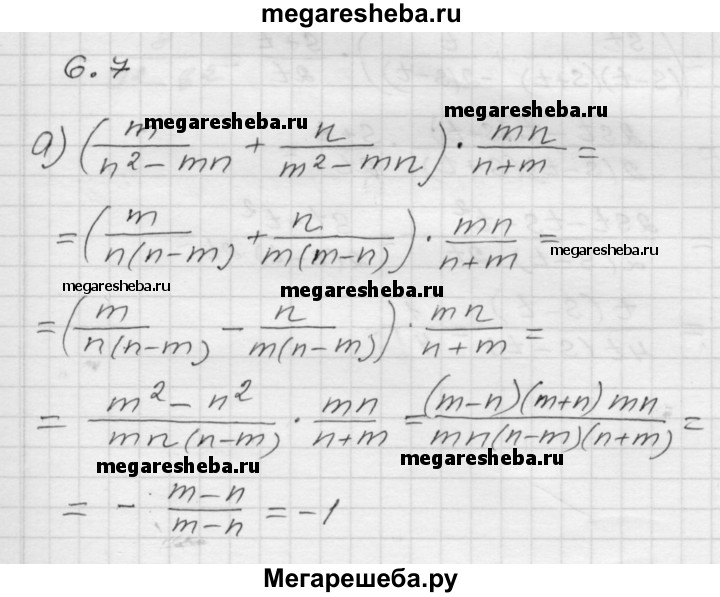 megaresheba.ru
6.7
а) (m/(n² − mn) + n/(m² − mn)) · mn/(n+m) =
megaresheba.ru
megaresheba.ru
= (m/(n(n−m)) + n/(m(m−n))) · mn/(n+m) =
megaresheba.ru
megaresheba.ru
megaresheba.ru
= (m/(n(n−m)) − n/(m(n−m))) · mn/(n+m) =
= (m² − n²)/(mn(n−m)) · mn/(n+m) = (m−n)(m+n)mn/(mn(n−m)(n+m)) =
megaresheba.ru
megaresheba.ru
= − (m−n)/(m−n) = −1
Мегарешеба.ру